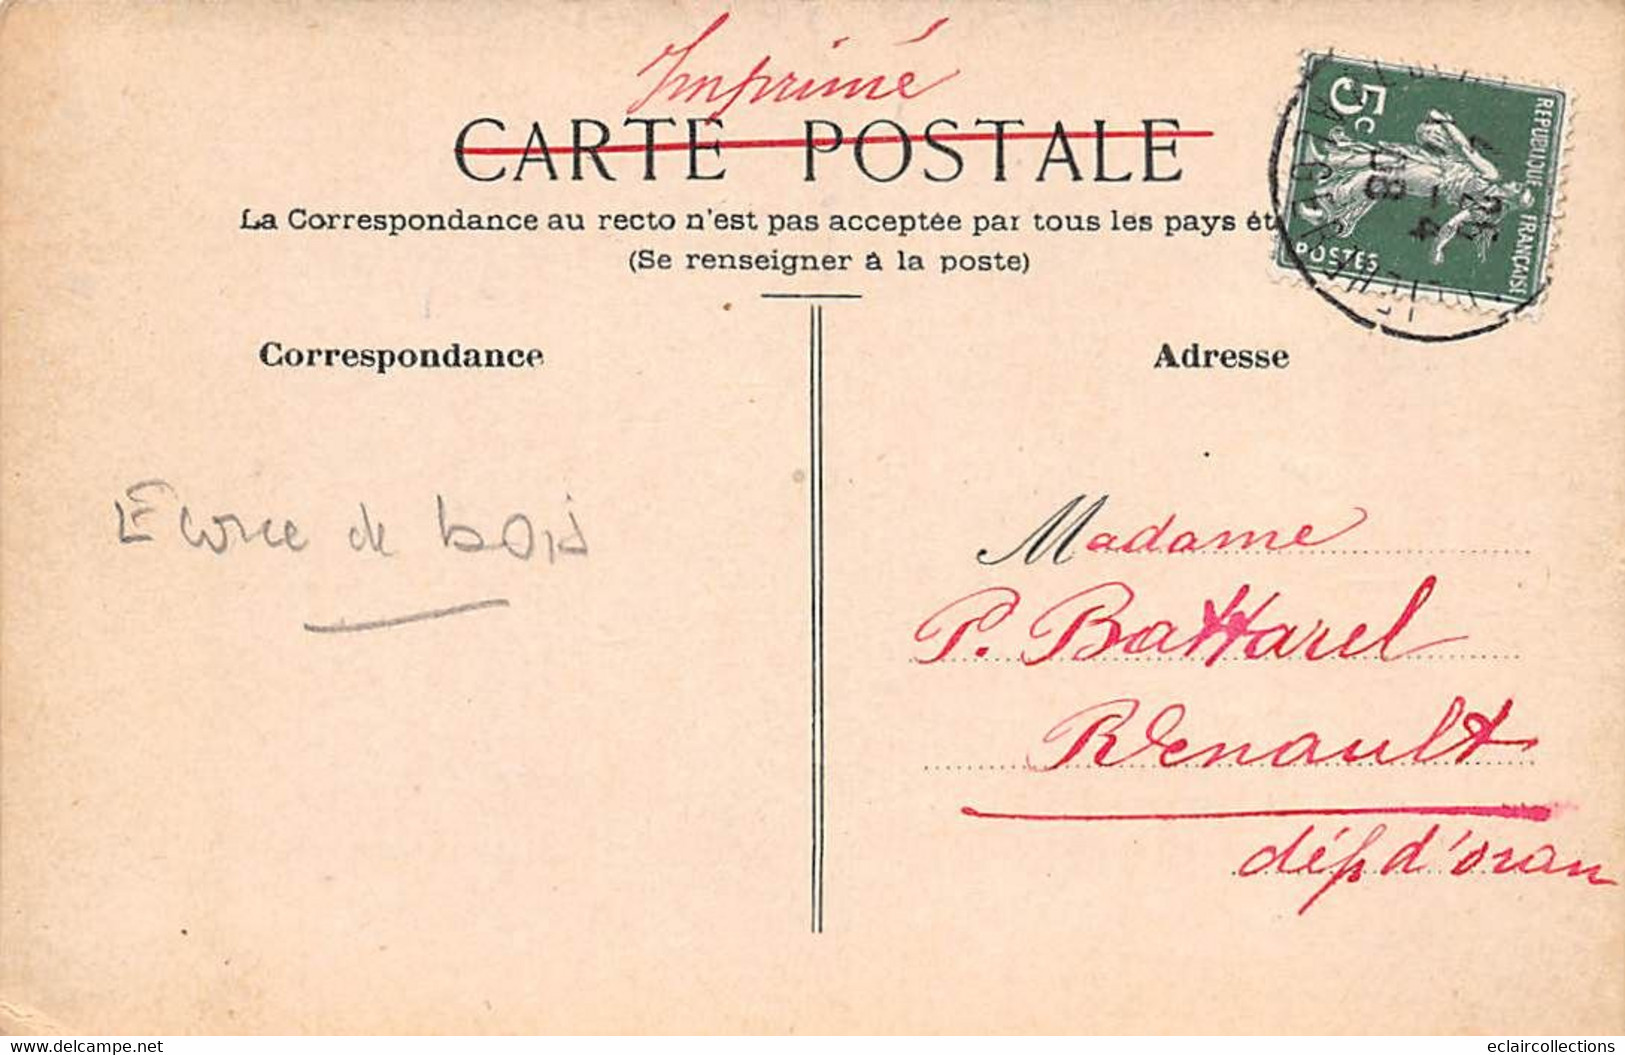 Imprimé
CARTE POSTALE
La Correspondance au recto n'est pas acceptée par tous les pays ét
(Se renseigner à la poste)
5c
REPUBLIQUE FRANÇAISE
POSTES
4
08
Correspondance
Adresse
Écorce de bois
Madame
P. Battarel
Renault
dép d'oran
delcampe.net
eclaircollections